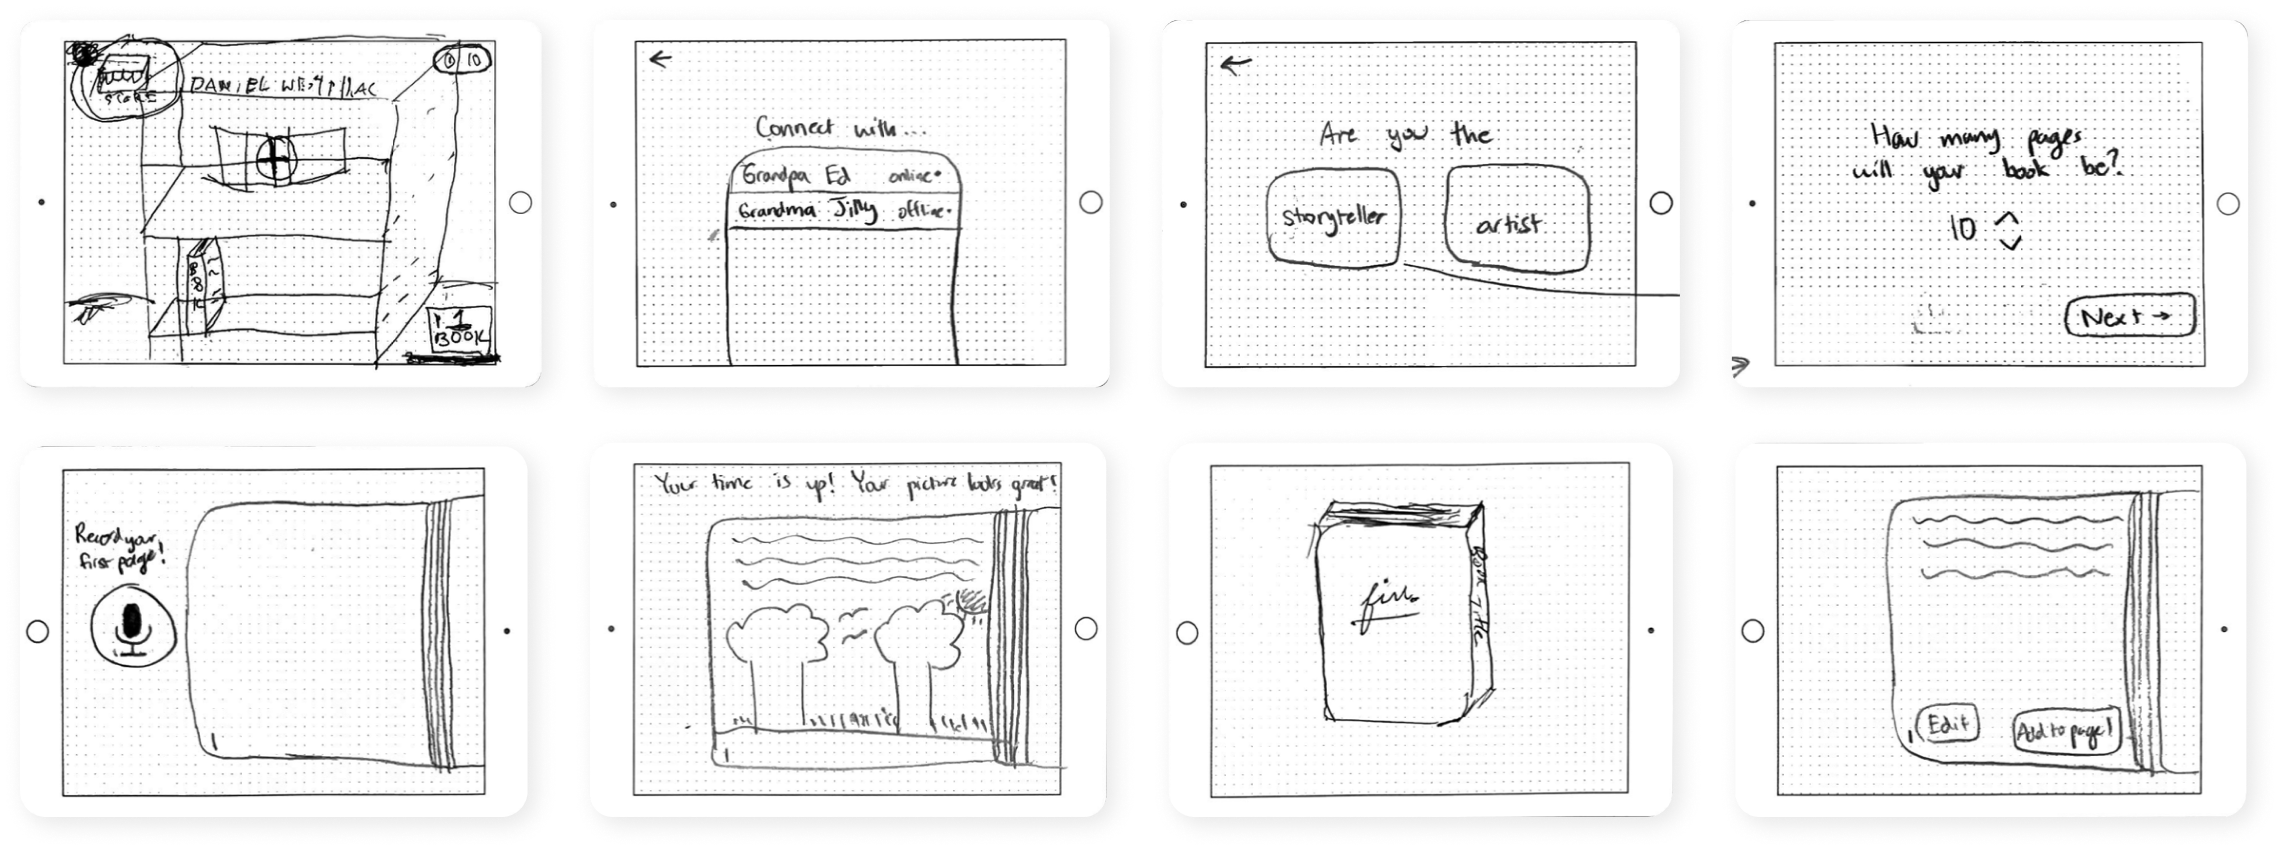 STORE
DANIEL
10
BOOK
1
BOOK
←
Connect with...
Grandpa Ed online
Grandma Jilly offline
←
Are you the
storyteller
artist
How many pages
will your book be?
10
Next →
Record your
first page!
1
Your time is up! Your picture looks great!
1
Book Title
1
Edit
Add to page!